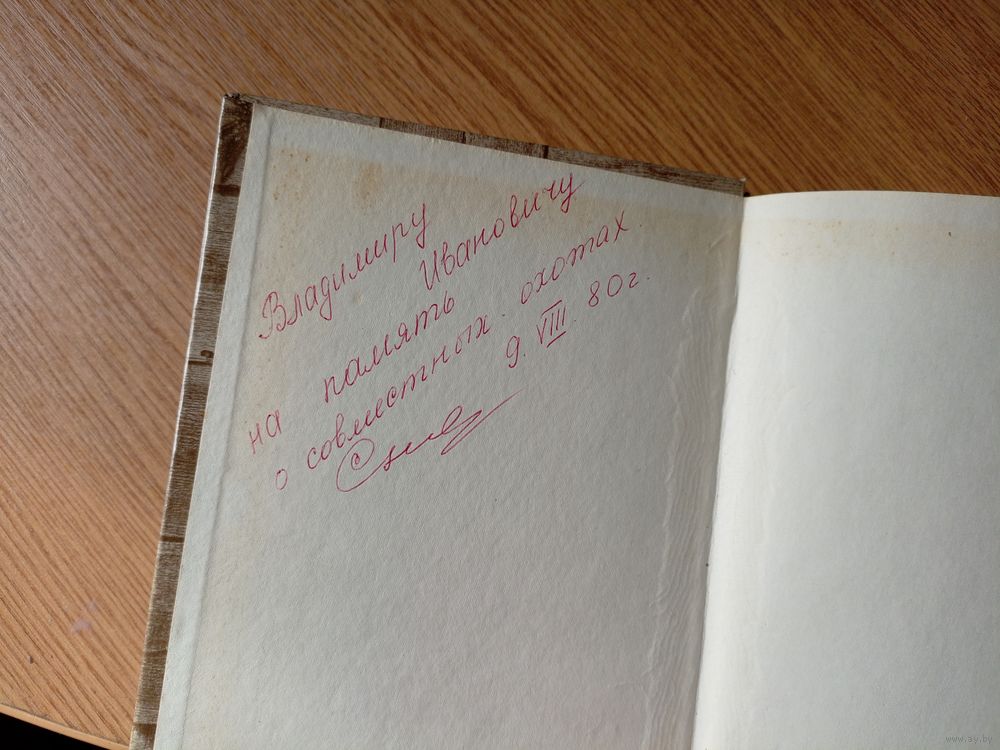 Владимиру
Ивановичу
на память
о совместных охотах.
9. VIII. 80г.
www.ay.by